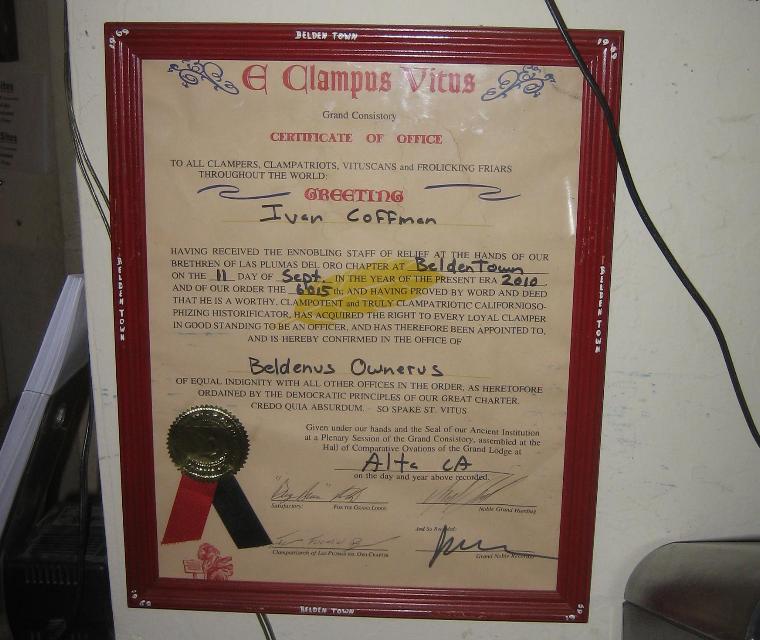 BELDEN TOWN
1969
1969
E Clampus Vitus
Grand Consistory
CERTIFICATE OF OFFICE
TO ALL CLAMPERS, CLAMPATRIOTS, VITUSCANS and FROLICKING FRIARS
THROUGHOUT THE WORLD:
GREETING
Ivan Coffman
HAVING RECEIVED THE ENNOBLING STAFF OF RELIEF AT THE HANDS OF OUR
BRETHREN OF LAS PLUMAS DEL ORO CHAPTER AT Belden Town
ON THE 11 DAY OF Sept. IN THE YEAR OF THE PRESENT ERA 2010
AND OF OUR ORDER THE 6015 th; AND HAVING PROVED BY WORD AND DEED
THAT HE IS A WORTHY, CLAMPOTENT and TRULY CLAMPATRIOTIC CALIFORNIOSO-
PHIZING HISTORIFICATOR, HAS ACQUIRED THE RIGHT TO EVERY LOYAL CLAMPER
IN GOOD STANDING TO BE AN OFFICER, AND HAS THEREFORE BEEN APPOINTED TO,
AND IS HEREBY CONFIRMED IN THE OFFICE OF
Beldenus Ownerus
OF EQUAL INDIGNITY WITH ALL OTHER OFFICES IN THE ORDER, AS HERETOFORE
ORDAINED BY THE DEMOCRATIC PRINCIPLES OF OUR GREAT CHARTER.
CREDO QUIA ABSURDUM. - SO SPAKE ST. VITUS
Given under our hands and the Seal of our Ancient Institution
at a Plenary Session of the Grand Consistory, assembled at the
Hall of Comparative Ovations of the Grand Lodge at
Alta CA
on the day and year above recorded.
Satisfactory: FOR THE GRAND LODGE Noble Grand Humbug
And So Recorded:
Clampatriarch of LAS PLUMAS DEL ORO CHAPTER Grand Noble Recorder
BELDEN TOWN
BELDEN TOWN
BELDEN TOWN